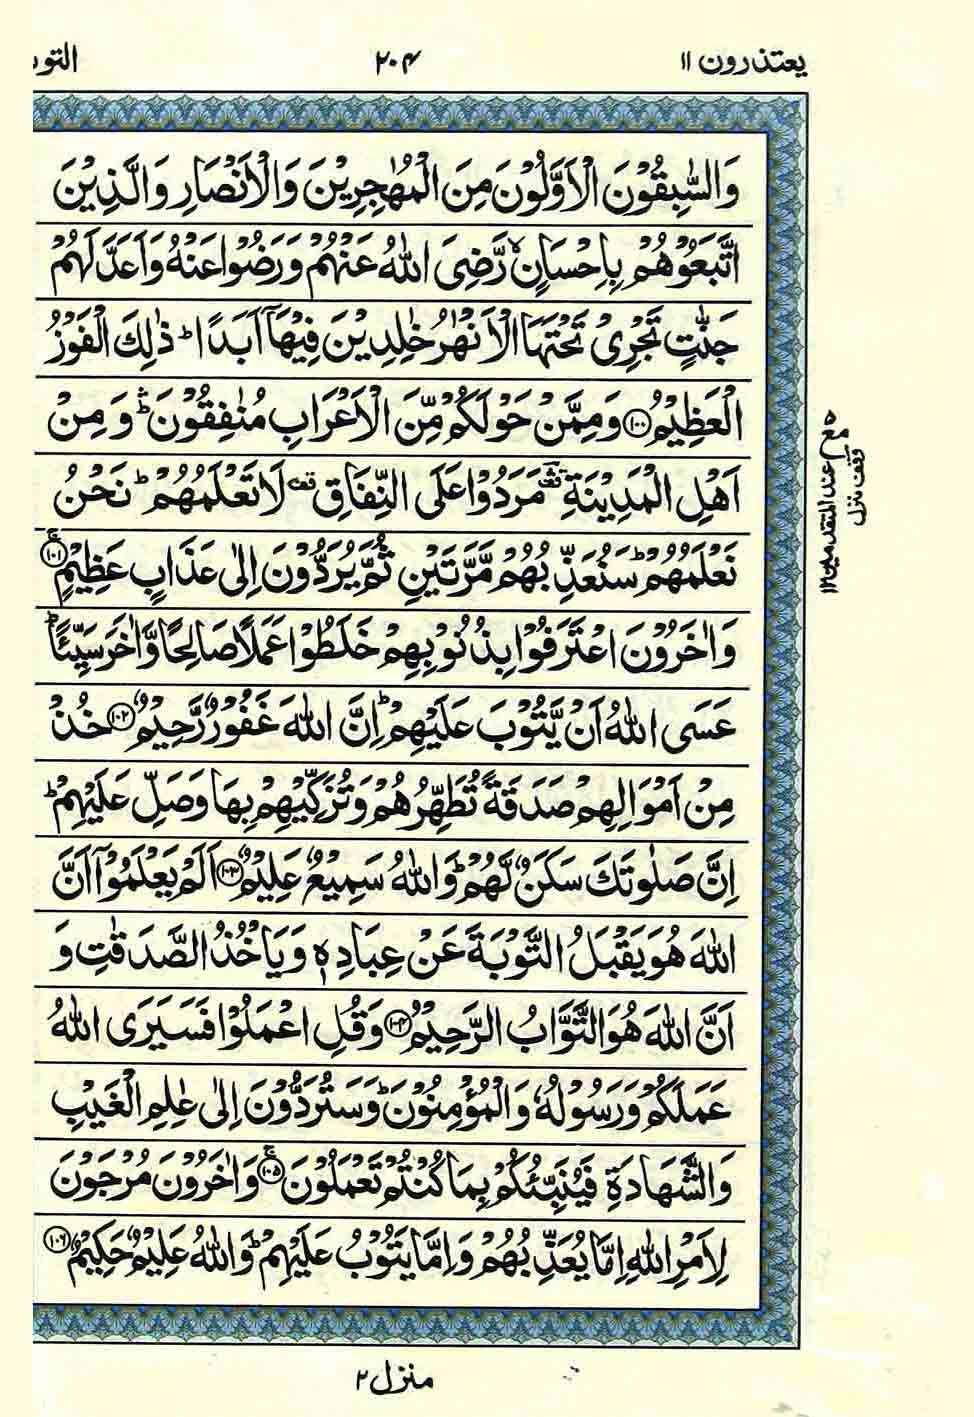 يعتذرون ١١
٢٠٤
التوب
وَالسّٰبِقُوْنَ الْاَوَّلُوْنَ مِنَ الْمُهٰجِرِيْنَ وَالْاَنْصَارِ وَالَّذِيْنَ
اتَّبَعُوْهُمْ بِاِحْسَانٍ ۙ رَّضِىَ اللّٰهُ عَنْهُمْ وَرَضُوْا عَنْهُ وَاَعَدَّ لَهُمْ
جَنّٰتٍ تَجْرِىْ تَحْتَهَا الْاَنْهٰرُ خٰلِدِيْنَ فِيْهَاۤ اَبَدًا ؕ ذٰلِكَ الْفَوْزُ
الْعَظِيْمُ ١٠٠ وَمِمَّنْ حَوْلَكُمْ مِّنَ الْاَعْرَابِ مُنٰفِقُوْنَ ۛؕ وَمِنْ
اَهْلِ الْمَدِيْنَةِ ۛؔ مَرَدُوْا عَلَى النِّفَاقِ قف لَا تَعْلَمُهُمْ ؕ نَحْنُ
نَعْلَمُهُمْ ؕ سَنُعَذِّبُهُمْ مَّرَّتَيْنِ ثُمَّ يُرَدُّوْنَ اِلٰى عَذَابٍ عَظِيْمٍ ١٠١
وَاٰخَرُوْنَ اعْتَرَفُوْا بِذُنُوْبِهِمْ خَلَطُوْا عَمَلًا صَالِحًا وَّاٰخَرَ سَيِّئًا ؕ
عَسَى اللّٰهُ اَنْ يَّتُوْبَ عَلَيْهِمْ ؕ اِنَّ اللّٰهَ غَفُوْرٌ رَّحِيْمٌ ١٠٢ خُذْ
مِنْ اَمْوَالِهِمْ صَدَقَةً تُطَهِّرُهُمْ وَتُزَكِّيْهِمْ بِهَا وَصَلِّ عَلَيْهِمْ ؕ
اِنَّ صَلٰوتَكَ سَكَنٌ لَّهُمْ ؕ وَاللّٰهُ سَمِيْعٌ عَلِيْمٌ ١٠٣ اَلَمْ يَعْلَمُوْۤا اَنَّ
اللّٰهَ هُوَ يَقْبَلُ التَّوْبَةَ عَنْ عِبَادِهٖ وَيَاْخُذُ الصَّدَقٰتِ وَ
اَنَّ اللّٰهَ هُوَ التَّوَّابُ الرَّحِيْمُ ١٠٤ وَقُلِ اعْمَلُوْا فَسَيَرَى اللّٰهُ
عَمَلَكُمْ وَرَسُوْلُهٗ وَالْمُؤْمِنُوْنَ ؕ وَسَتُرَدُّوْنَ اِلٰى عٰلِمِ الْغَيْبِ
وَالشَّهَادَةِ فَيُنَبِّئُكُمْ بِمَا كُنْتُمْ تَعْمَلُوْنَ ١٠٥ وَاٰخَرُوْنَ مُرْجَوْنَ
لِاَمْرِ اللّٰهِ اِمَّا يُعَذِّبُهُمْ وَاِمَّا يَتُوْبُ عَلَيْهِمْ ؕ وَاللّٰهُ عَلِيْمٌ حَكِيْمٌ ١٠٦
مع
عند المتقدمين ١٢
وقف منزل
منزل ٢